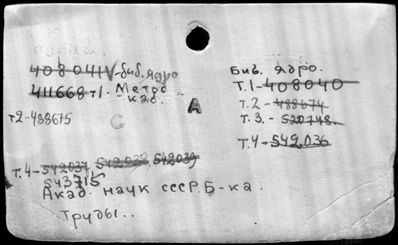 408041V-биб. ядро
411668 т1. Метод каб.
т2-488675
А
С
Биб. Ядро.
Т.1-408040
т.2-488674
т.3.-520748.
т.4-542036
т.4-542037 542038 542039
543715
Акад. наук СССР. Б-ка.
Труды..